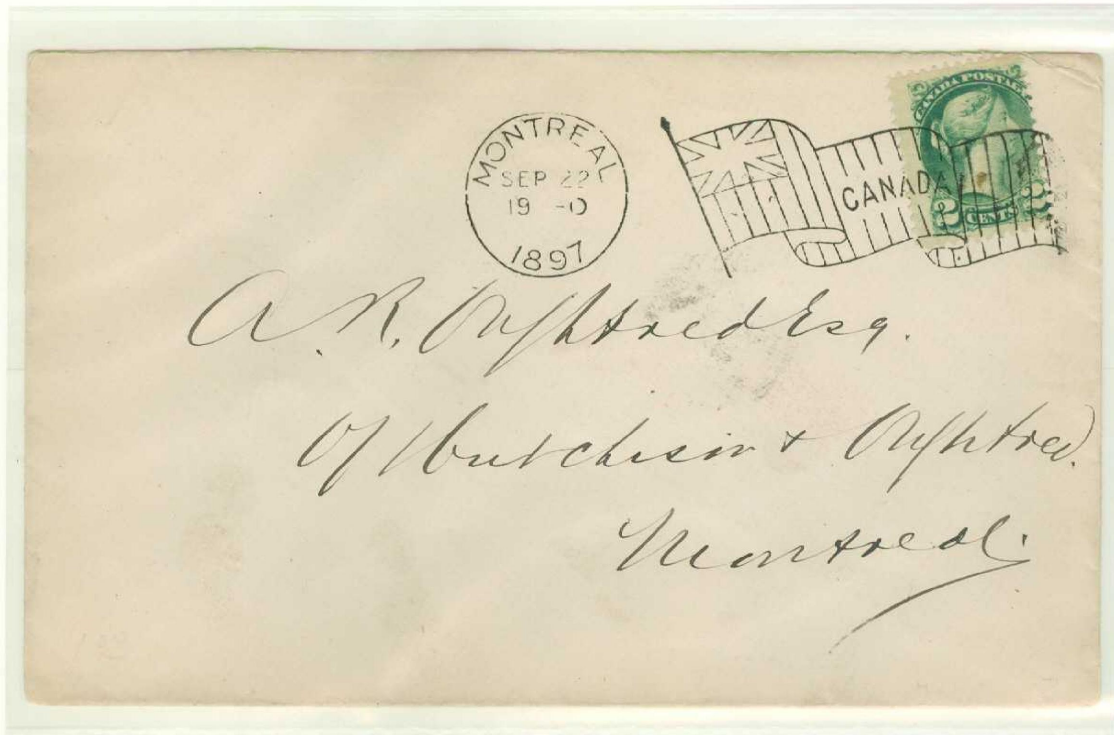 MONTREAL
SEP 22
19-0
1897
CANADA POSTAGE
CANADA
2 CENTS 2
A. R. Oughtred Esq.
Of Hutchison & Oughtred.
Montreal.